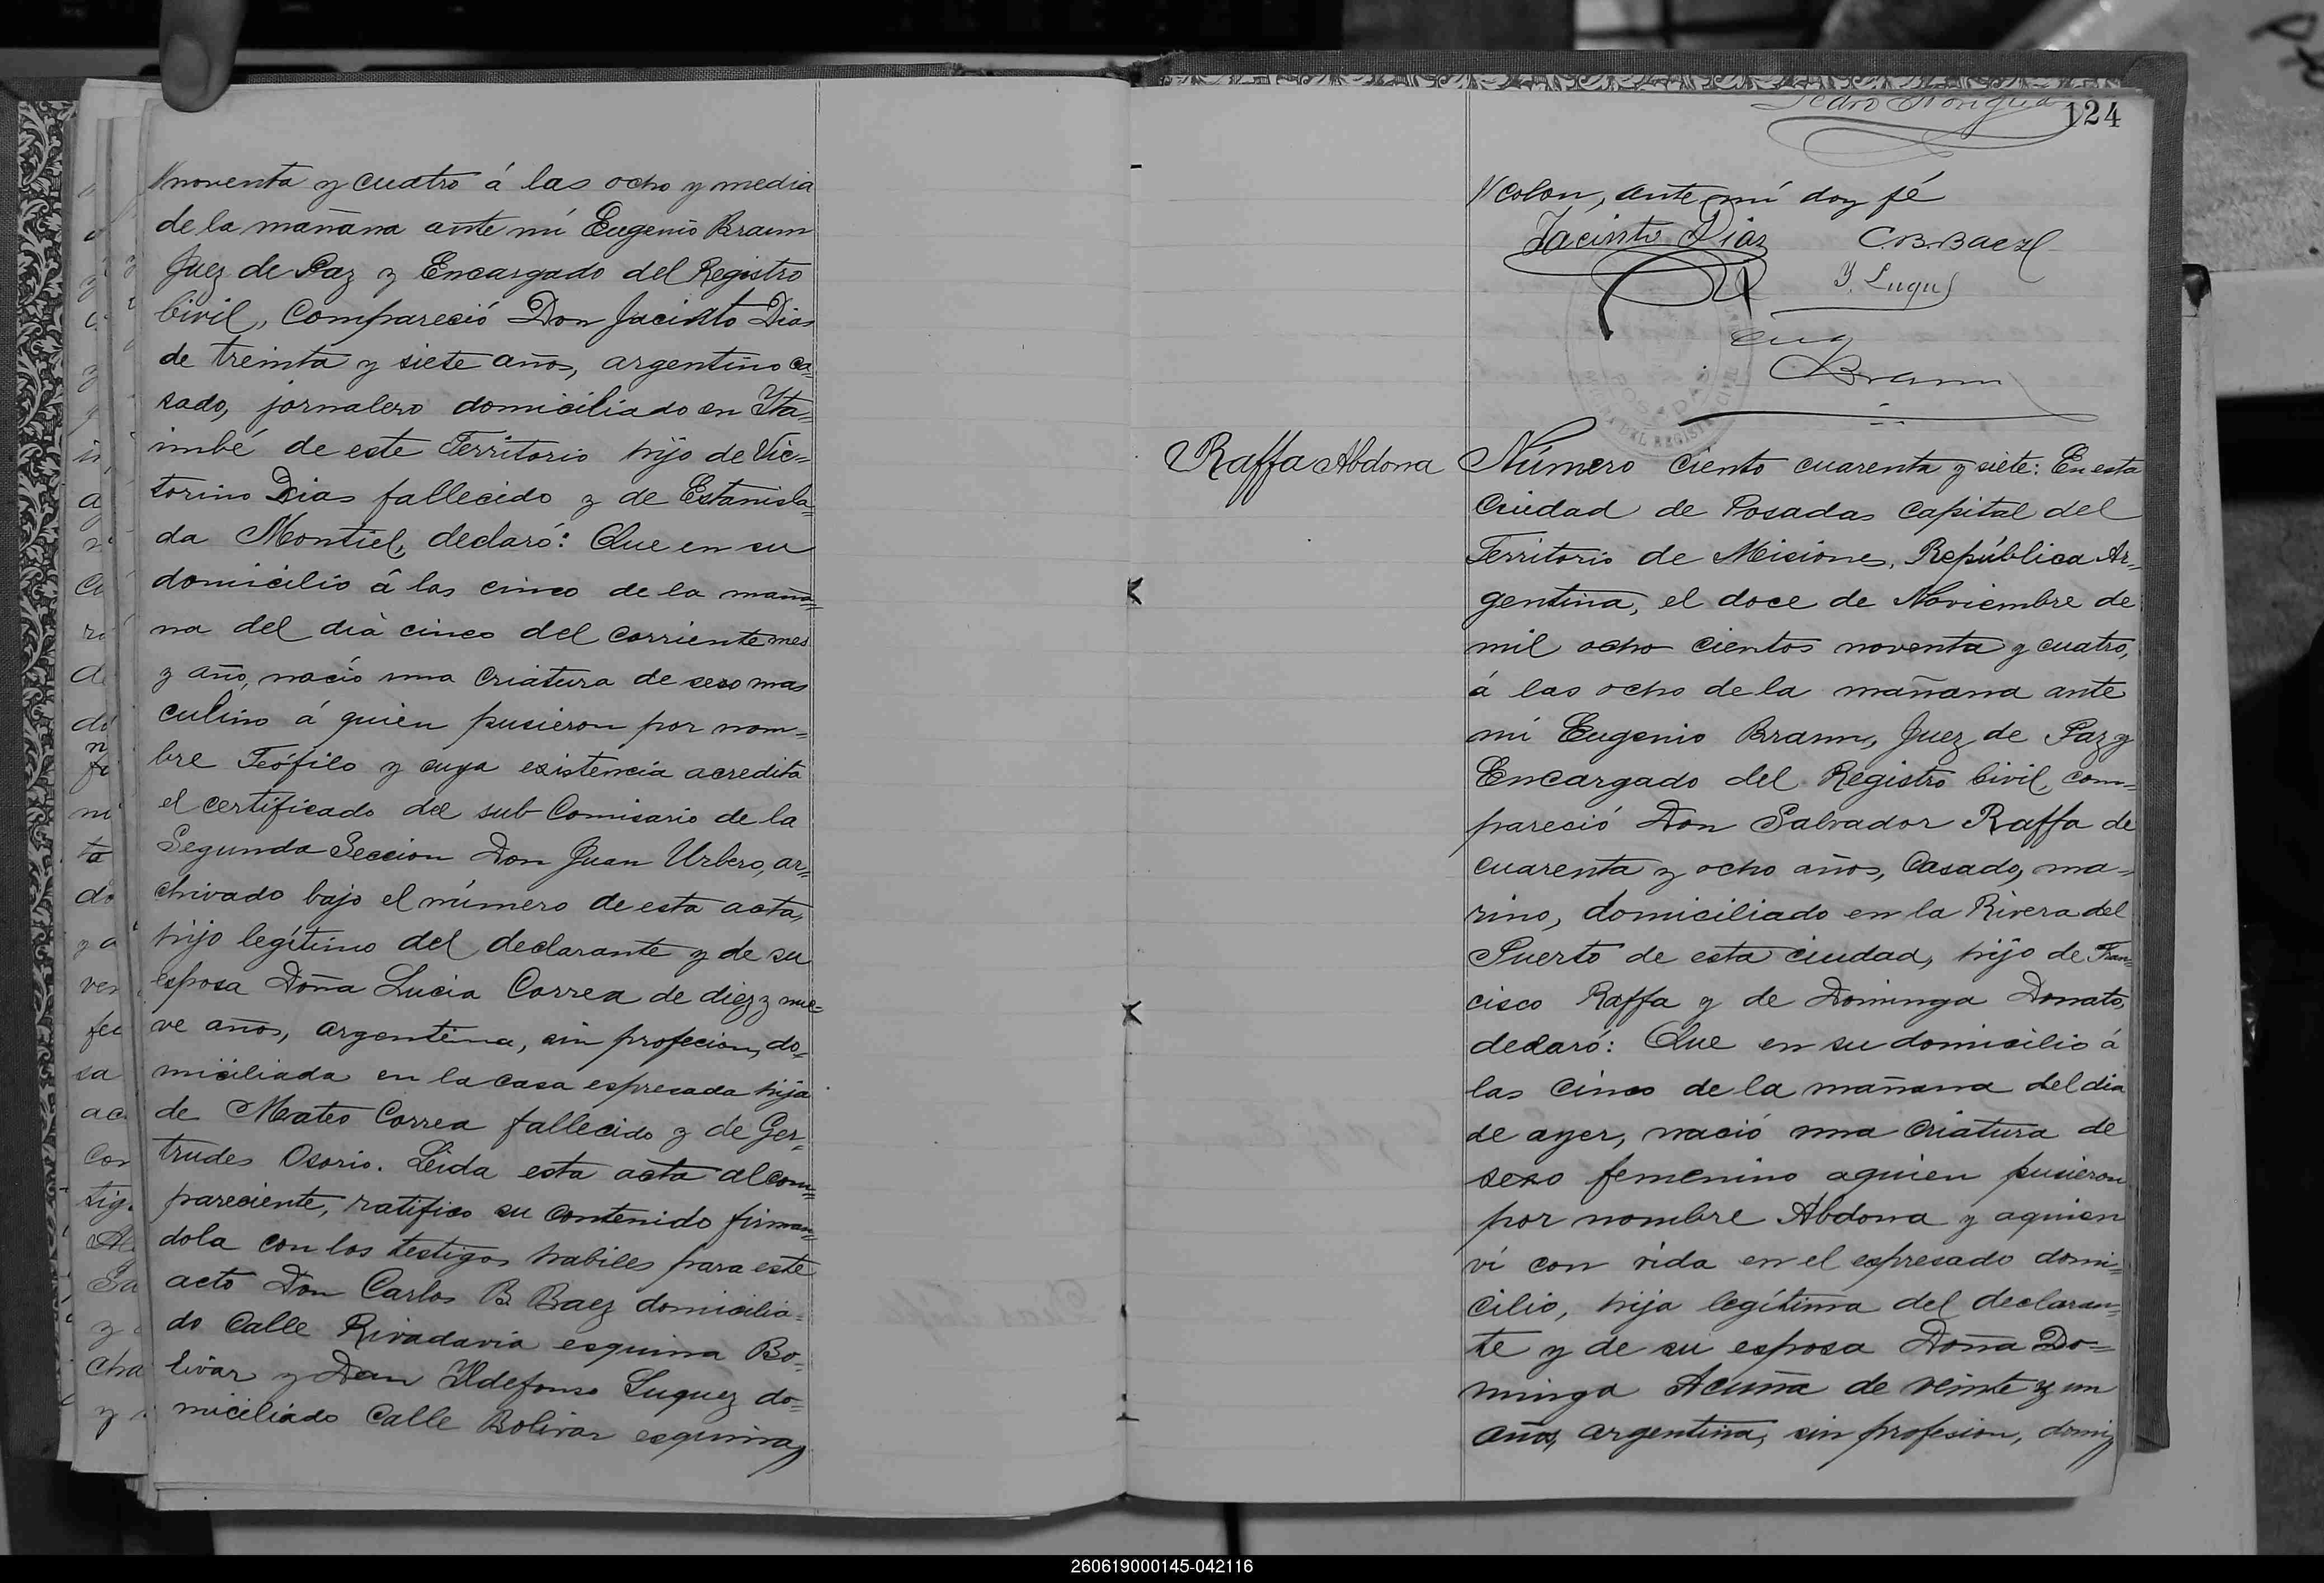 noventa y cuatro á las ocho y media
de la mañana ante mí Eugenio Braun
Juez de Paz y Encargado del Registro
Civil, Compareció Don Jacinto Dias
de treinta y siete años, argentino ca=
sado, jornalero domiciliado en Ita=
imbé de este Territorio hijo de Vic=
torino Dias fallecido y de Estanisla=
da Montiel, declaró: Que en su
domicilio á las cinco de la maña=
na del dia cinco del corriente mes
y año, nació una criatura de sexo mas
culino á quien pusieron por nom=
bre Teófilo y cuya existencia acredita
el certificado del sub Comisario de la
Segunda Seccion Don Juan Urbero, ar=
chivado bajo el número de esta acta,
hijo legítimo del declarante y de su
esposa Doña Lucia Correa de diez y nue=
ve años, argentina, sin profecion, do=
miciliada en la casa espresada hija
de Mateo Correa fallecido y de Ger=
trudes Osorio. Leida esta acta al com=
pareciente, ratifico su contenido firman=
dola con los testigos habiles para este
acto Don Carlos B. Baez domicilia=
do Calle Rivadavia esquina Bo=
livar y Don Ildefonso Luquez do=
miciliado Calle Bolivar esquina
124
Colon, ante mí doy fé
Jacinto Diaz
C B. Baez
Y. Luque
Eug
Braun
POSADAS
DEL REGISTRO CIVIL
Raffa Abdona
Número ciento cuarenta y siete: En esta
Ciudad de Posadas Capital del
Territorio de Misiones, República Ar=
gentina, el doce de Noviembre de
mil ocho cientos noventa y cuatro,
á las ocho de la mañana ante
mí Eugenio Braun, Juez de Paz y
Encargado del Registro Civil, com=
pareció Don Salvador Raffa de
cuarenta y ocho años, Casado, ma=
rino, domiciliado en la Rivera del
Puerto de esta ciudad, hijo de Fran=
cisco Raffa y de Dominga Donato,
declaró: Que en su domicilio á
las cinco de la mañana del dia
de ayer, nació una criatura de
sexo femenino aquien pusieron
por nombre Abdona y aquien
ví con vida en el espresado domi=
cilio, hija legítima del declaran=
te y de su esposa Doña Do=
minga Acuña de veinte y un
años, argentina, sin profesion, domi
260619000145-042116